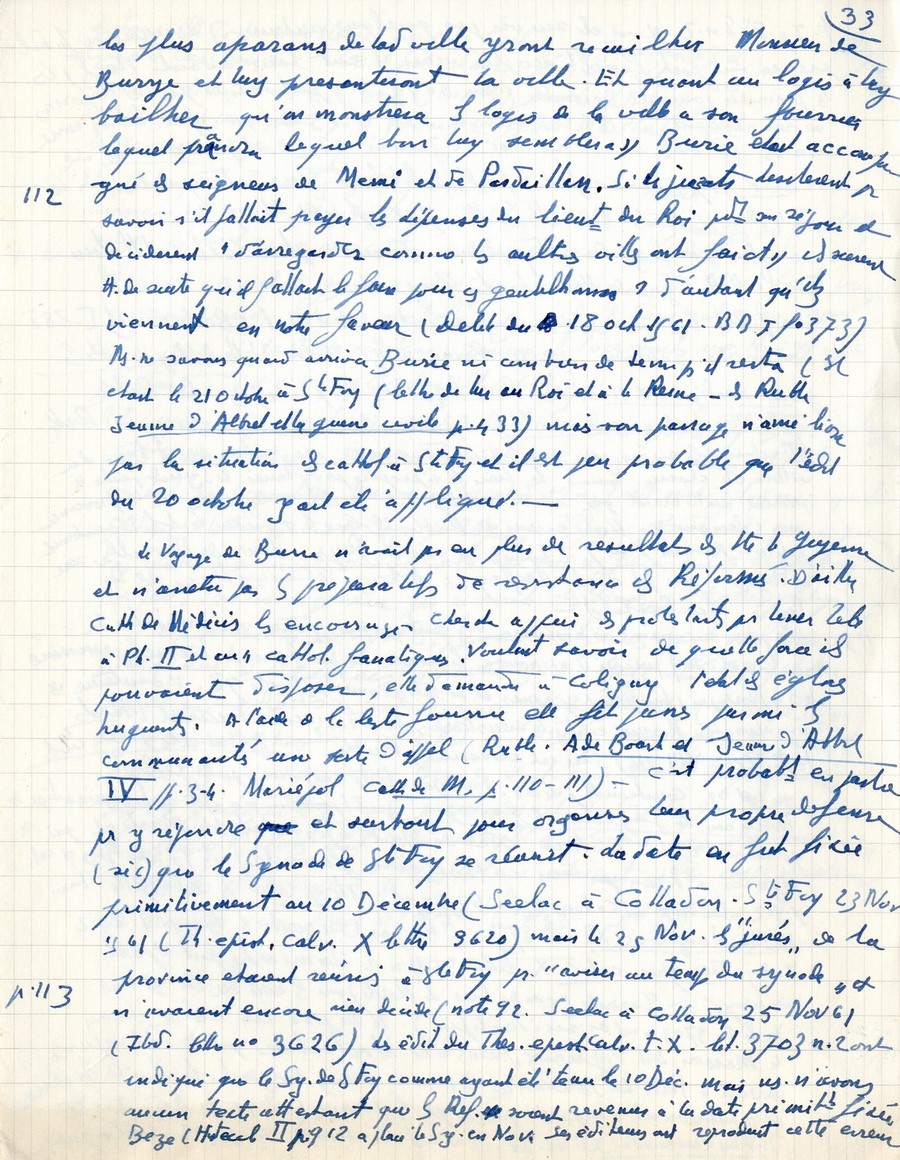 33
les plus aparans de lad ville yront recuilher Monsieur de
Burye et luy presenteront la ville. Et quant au logis à luy
bailher qu'on monstrera logis de la ville a son fourrier
lequel prandra lequel bon luy semblera" Burie était accompa
112
gné des seigneurs de Memi et de Pardaillan. Si les jurats desirerent pr
savoir s'il fallait payer les dépenses du lieut du Roi pdt son séjour et
déciderent "d'avregarder comme les aultres villes ont faict" ils
H. de suite qu'il fallait le faire pour ces gentilhomes "d'autant qu'ils
viennent en notre faveur (Delib du 18 oct 1561. BB I fo 373)
Ns. ne savons quand arriva Burie ni combien de temps il resta (Il
était le 21 octobre à Ste Foy (lettre de lui au Roi et à la Reine - de Ruble
Jeanne d'Albret et la guerre civile p. 433) mais son passage n'améliora
pas la situation des cathol à Ste Foy et il est peu probable que l'édit
du 20 octobre y ait été appliqué. —
Le Voyage de Burie n'avait pas eu plus de resultats ds tte la Guyenne
et n'arreta pas les préparatifs de resistance des Réformés. D'aill
Cath de Médicis les encourage. Cherche appui des protestants pr tenir tete
à Ph. II et aux cathol. fanatiques. Voulant savoir de quelle force ils
pouvaient disposer, elle demanda à Coligny l'état des églises
huguenots. A l'aide de la liste fournie elle fit passer parmi les
communautés une sorte d'appel (Ruble. A de Bourbon et Jeanne d'Albret
IV pp. 3-4. Mariéjol Cath de M. p. 110-111) — C'est probabt en partie
pr y répondre et surtout pour organiser leur propre defense
(sic) que le Synode de Ste Foy se réunit. La date en fut fixée
primitivement au 10 Décembre (Seelac à Colladon. Ste Foy 23 Nov
1561 (Th. epist. Calv. X lettre 3620) mais le 25 Nov. les "jurés" de la
province etaient réunis à Ste Foy pr. "aviser au temps du synode" et
p. 113
n'avaient encore rien décidé (note 92. Seelac à Colladon 25 Nov 61
(Ibd. lettre no 3626) Les édit du Thes. epist Calv. t. X. let. 3703 n. 2 ont
indiqué que le Sy. de Ste Foy comme ayant été tenu le 10 Déc. mais ns. n'avons
aucun texte attestant que les Ref. soient revenus à la date primitt fixée
Beze (H eccl II p 912 a placé le Sy. en Nov. Ses éditeurs ont reproduit cette erreur